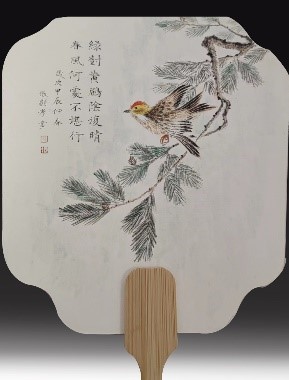 綠樹黃鸝陰復晴
春風何處不堪行
歲次甲辰仲春